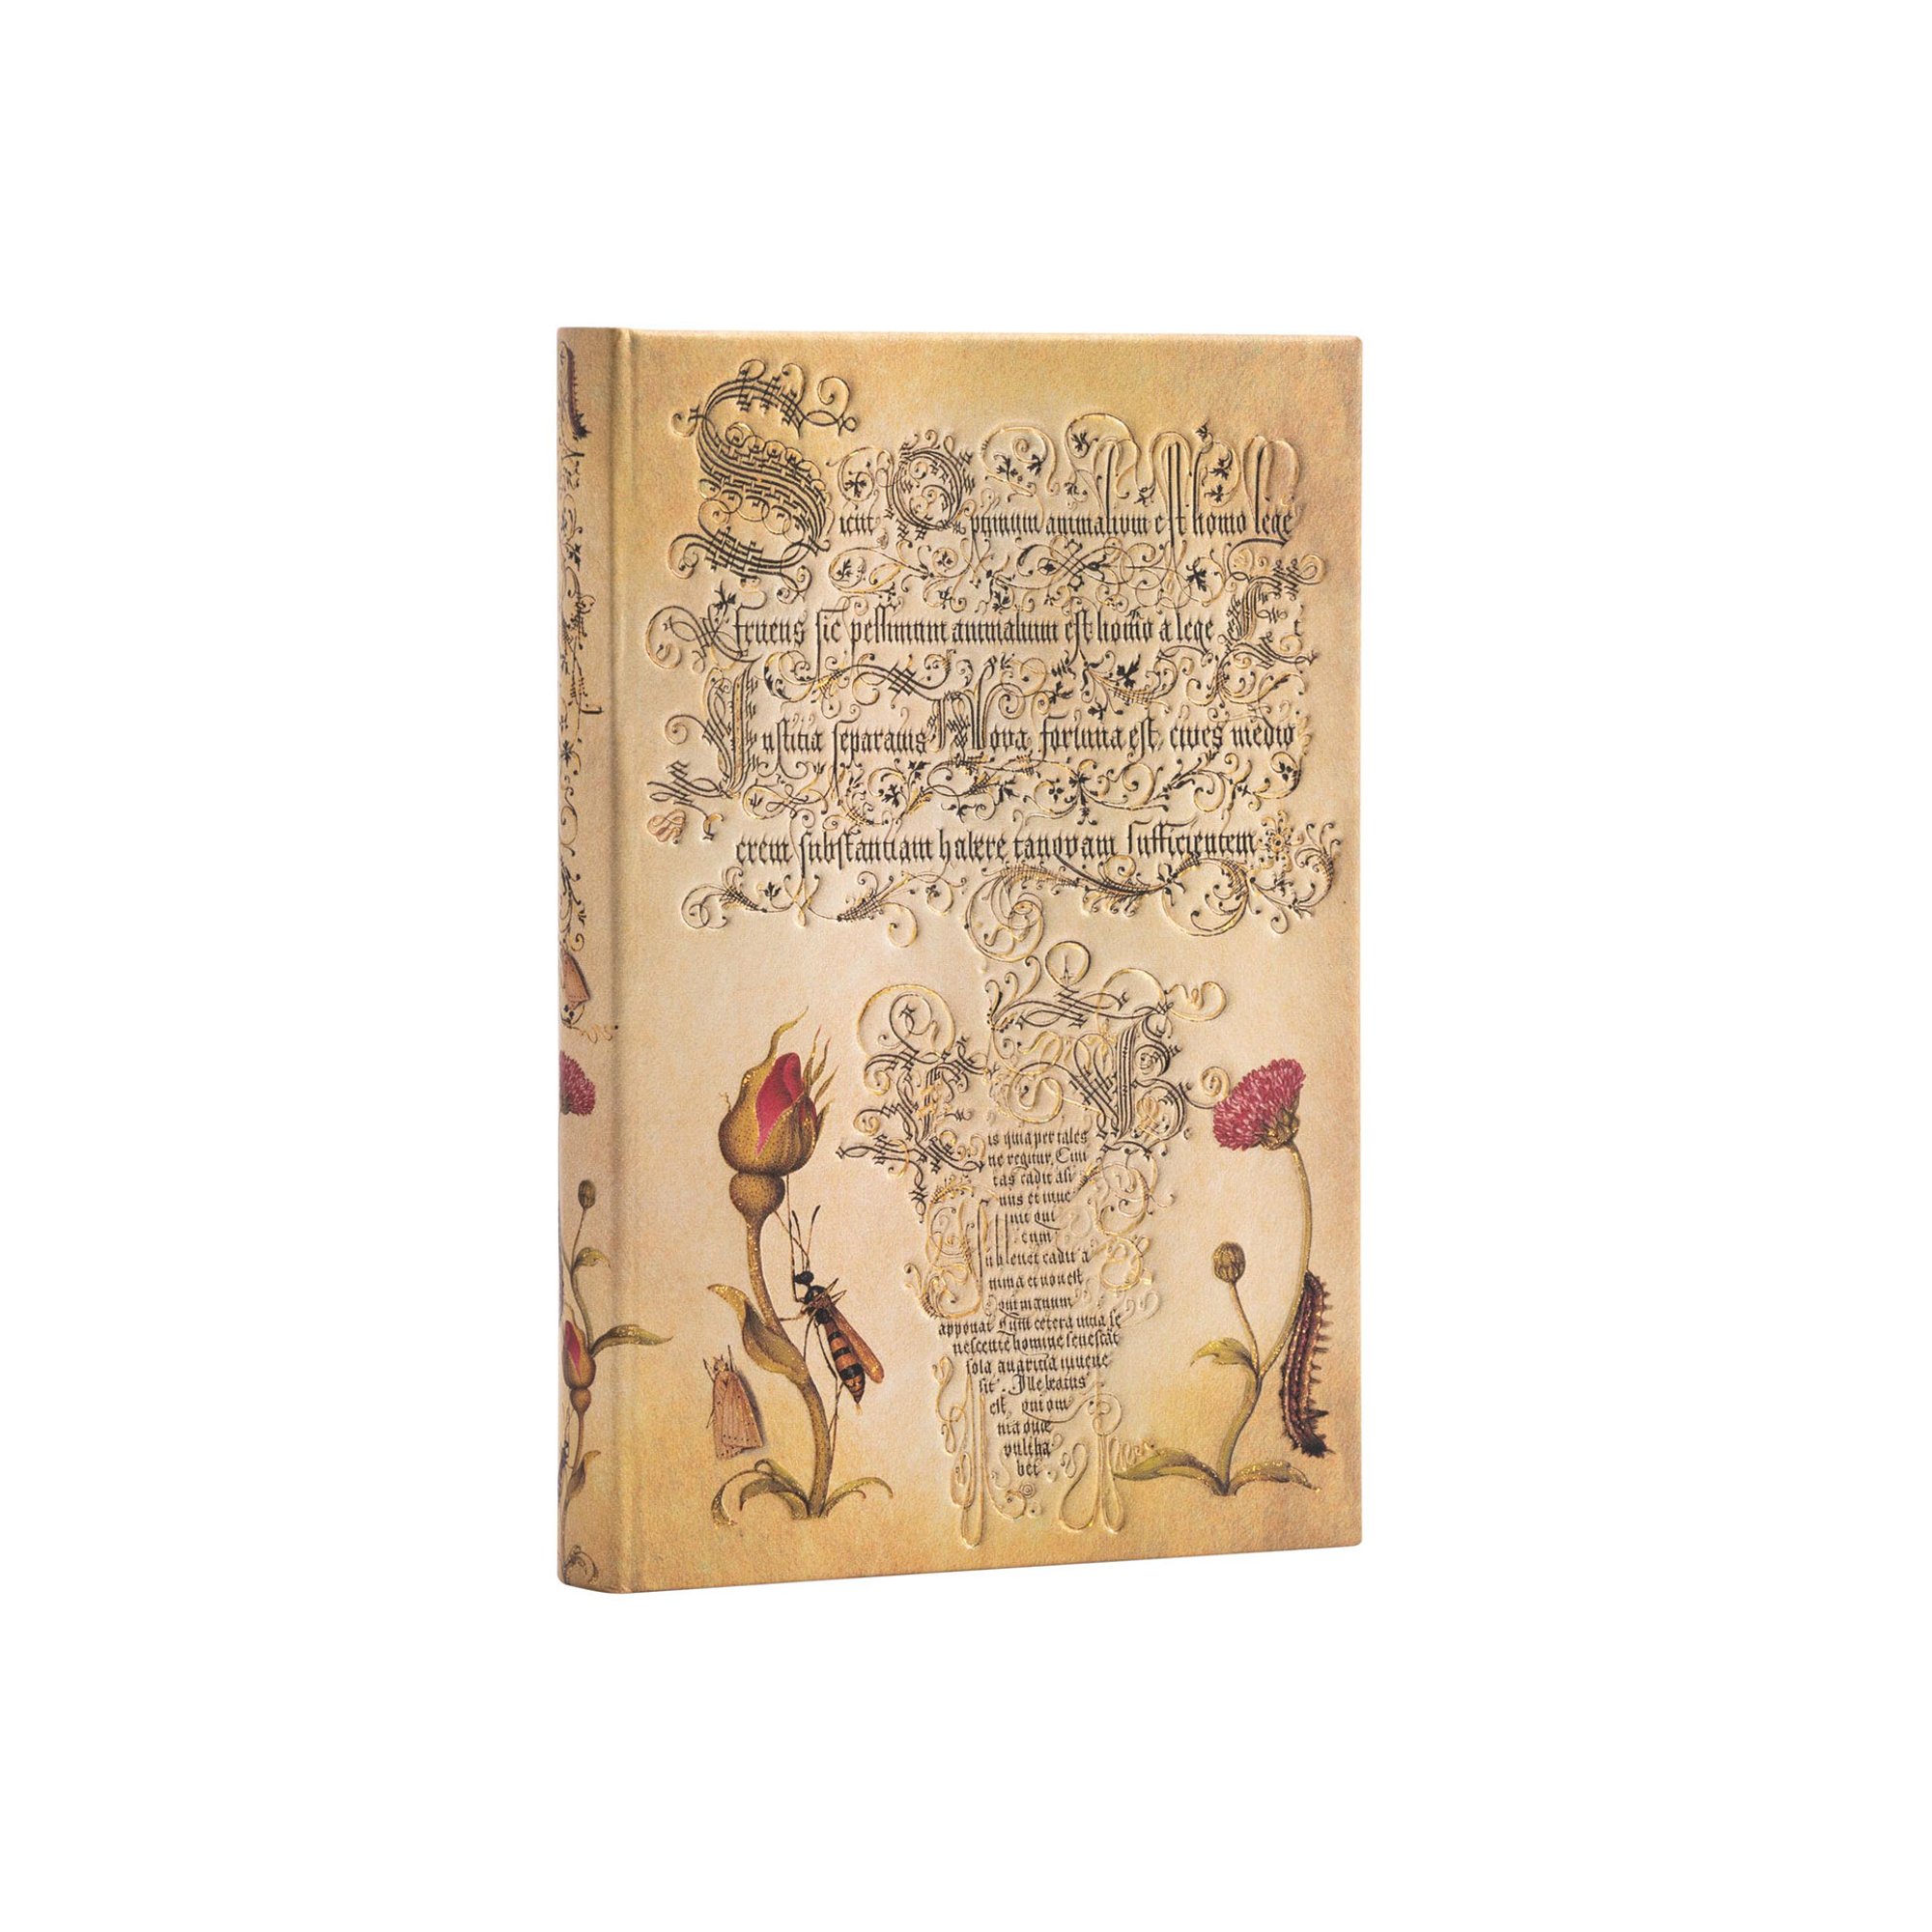 Sicut Optimum animalium est homo lege
fruens sic pessimum animalium est homo a lege Et
Iustitia separatus Nova fortuna est, cives medio
crem substantiam habere tanquam sufficientem
is quia per tales
ne regitur. Civi
tas cadit asi
nus et inve
nit qui
eum
Sublevet cadit a
nima et non est
qui manum
apponat Cum cetera vitia se
nescente homine senescāt
sola avaritia iuvene
sit. Ille beatus
est, qui om
nia quæ
vult ha
bet